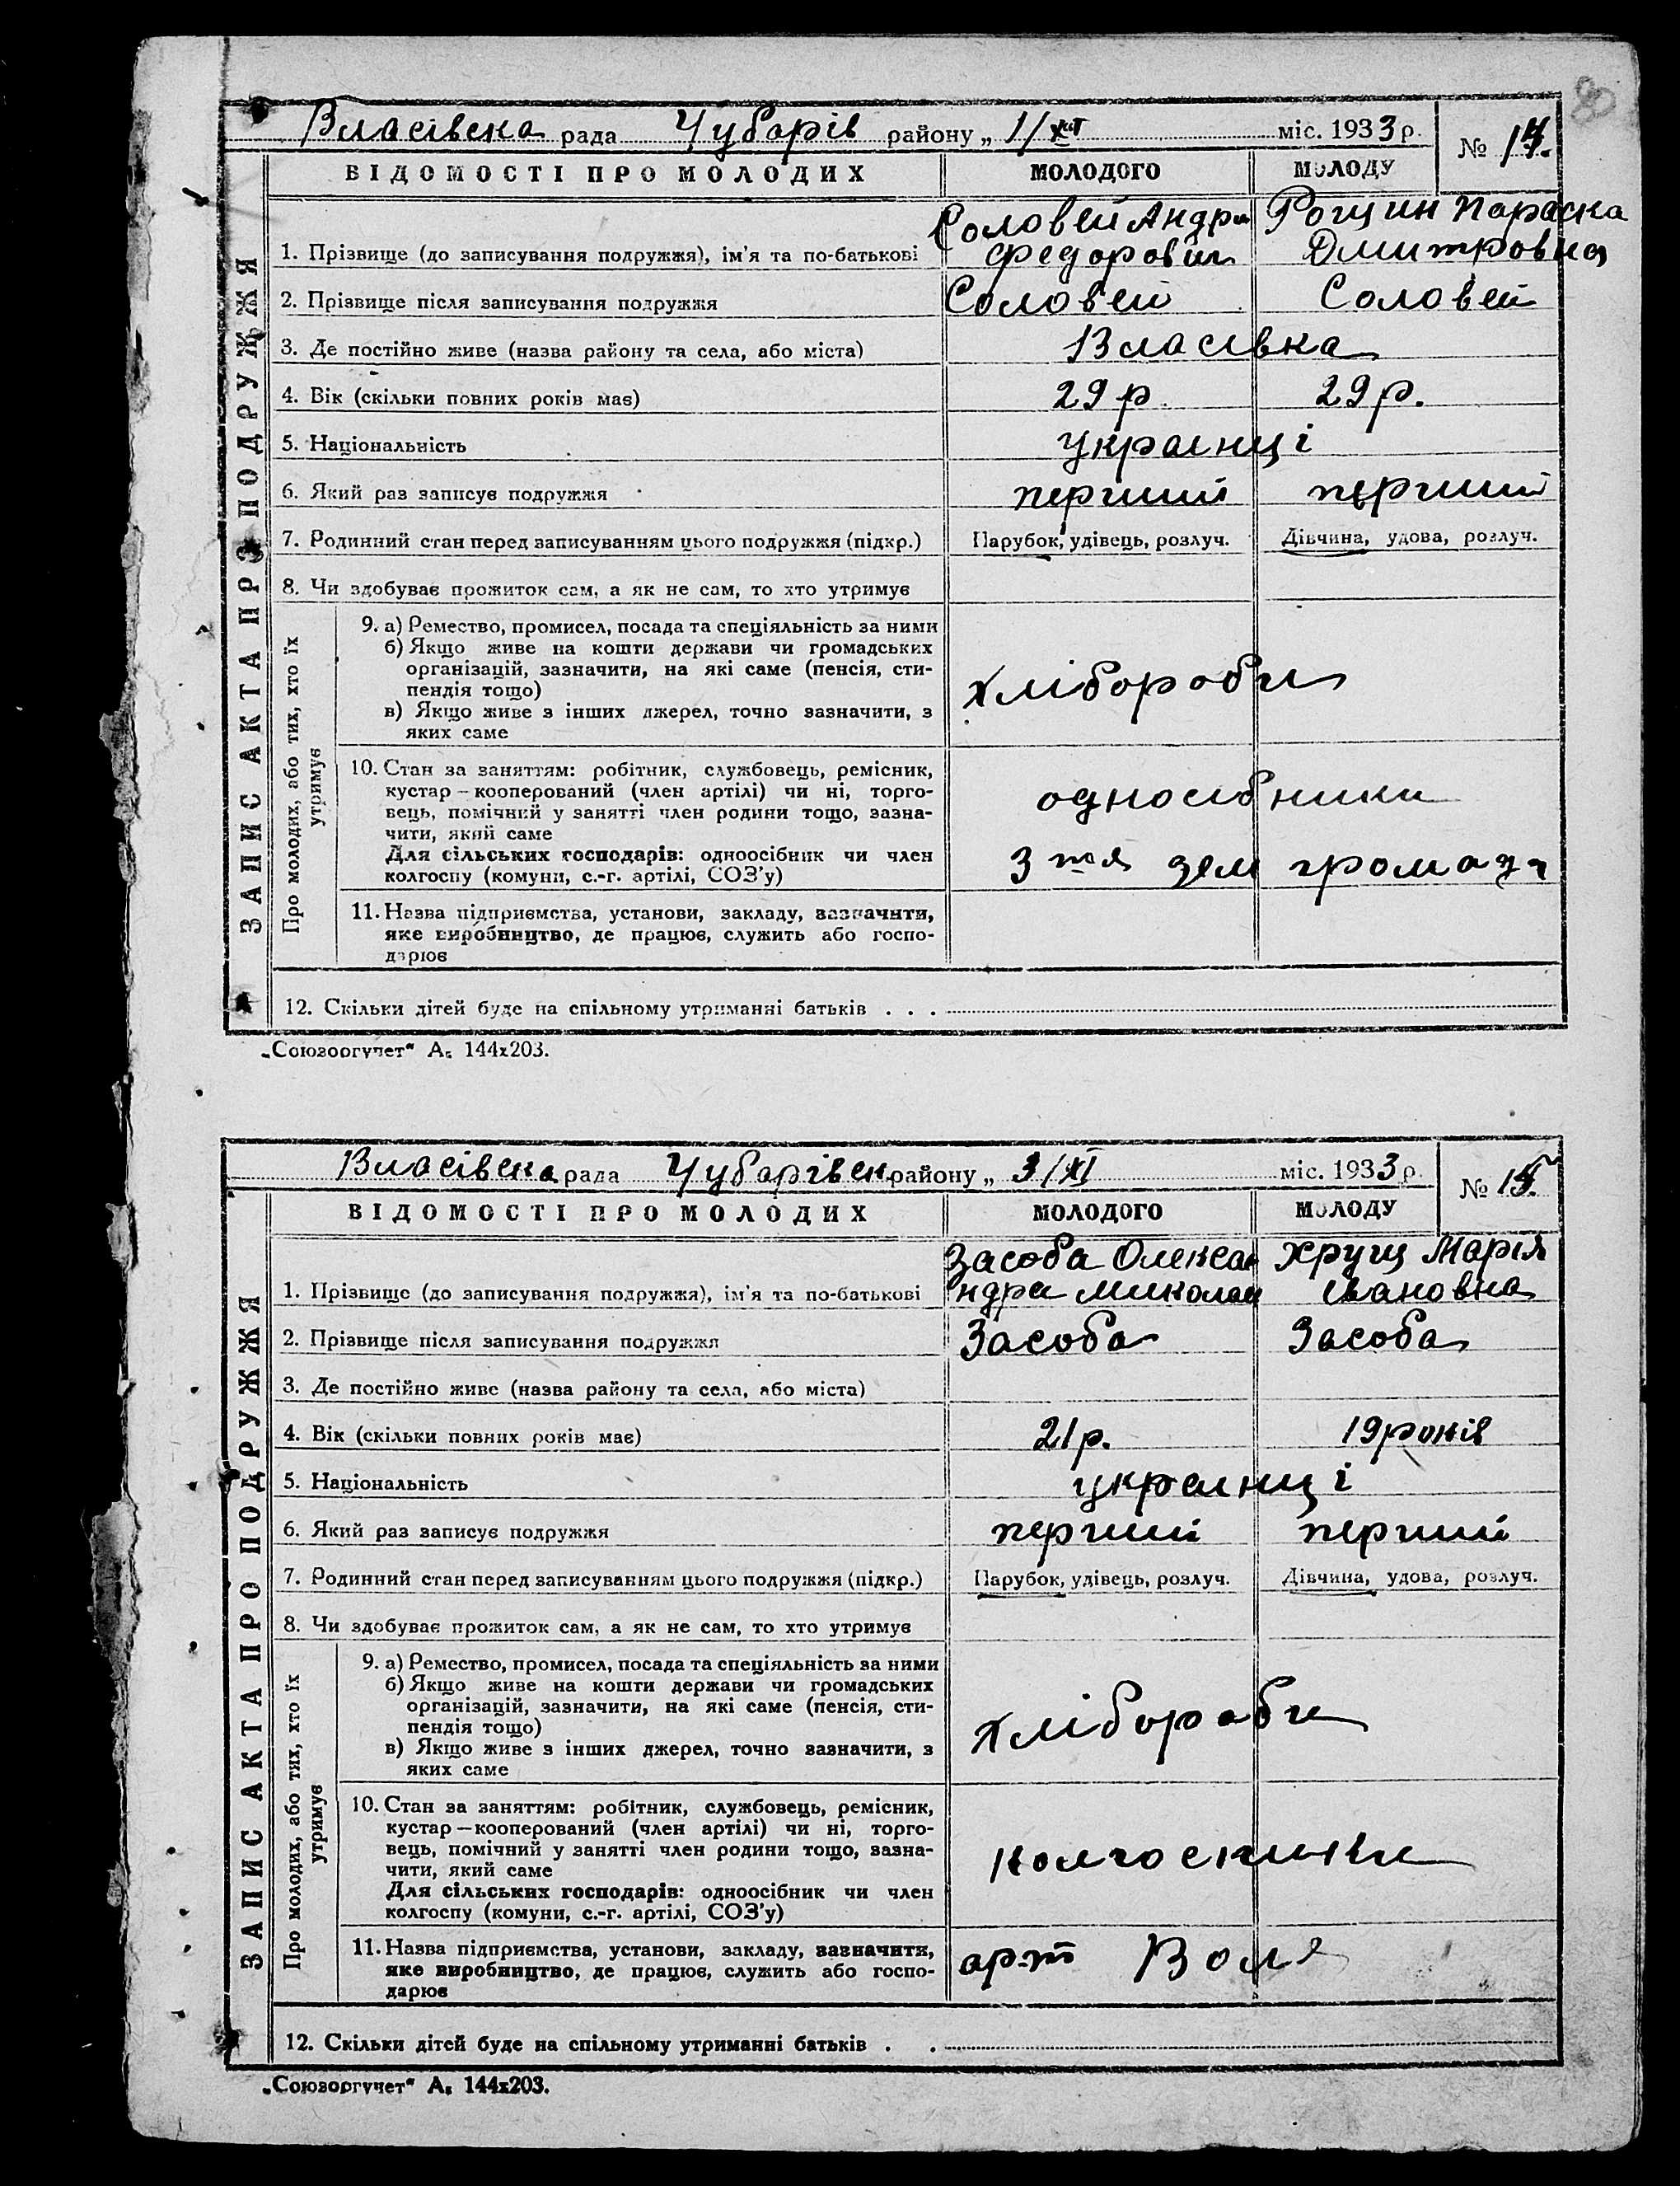 80
Власівська рада Чубарів району „ 1/XI міс. 1933 р. № 14.
ВІДОМОСТІ ПРО МОЛОДИХ МОЛОДОГО МОЛОДУ
Соловей Андрій Рощин Параска
1. Прізвище (до записування подружжя), ім'я та по-батькові Федорович Дмитровна
2. Прізвище після записування подружжя Соловей Соловей
3. Де постійно живе (назва району та села, або міста) Власівка
4. Вік (скільки повних років має) 29 р 29 р.
5. Національність украінці
6. Який раз записує подружжя перший перший
7. Родинний стан перед записуванням цього подружжя (підкр.) Парубок, удівець, розлуч. Дівчина, удова, розлуч.
8. Чи здобуває прожиток сам, а як не сам, то хто утримує
9. а) Ремество, промисел, посада та спеціяльність за ними
б) Якщо живе на кошти держави чи громадських
організацій, зазначити, на які саме (пенсія, сти-
пендія тощо) хлібороби
в) Якщо живе з інших джерел, точно зазначити, з
яких саме
10. Стан за заняттям: робітник, службовець, ремісник,
кустар – кооперований (член артілі) чи ні, торго-
вець, помічний у занятті член родини тощо, зазна- одноосібники
чити, який саме
Для сільських господарів: одноосібник чи член 3 тя зем громада
колгоспу (комуни, с.-г. артілі, СОЗ'у)
11. Назва підприємства, установи, закладу, зазначити,
яке виробництво, де працює, служить або госпо-
дарює
12. Скільки дітей буде на спільному утриманні батьків . . .
ЗАПИС АКТА ПРО ПОДРУЖЖЯ
Про молодих, або тих, хто їх
утримує
„Союзоргучет“ А₅ 144х203.
Власівська рада Чубарівськ району „ 3/XI міс. 1933 р. № 15.
ВІДОМОСТІ ПРО МОЛОДИХ МОЛОДОГО МОЛОДУ
Засоба Олекса Хрущ Марія
1. Прізвище (до записування подружжя), ім'я та по-батькові ндра Миколай Івановна
2. Прізвище після записування подружжя Засоба Засоба
3. Де постійно живе (назва району та села, або міста)
4. Вік (скільки повних років має) 21 р. 19 років
5. Національність украінці
6. Який раз записує подружжя перший перший
7. Родинний стан перед записуванням цього подружжя (підкр.) Парубок, удівець, розлуч. Дівчина, удова, розлуч.
8. Чи здобуває прожиток сам, а як не сам, то хто утримує
9. а) Ремество, промисел, посада та спеціяльність за ними
б) Якщо живе на кошти держави чи громадських
організацій, зазначити, на які саме (пенсія, сти-
пендія тощо) хлібороби
в) Якщо живе з інших джерел, точно зазначити, з
яких саме
10. Стан за заняттям: робітник, службовець, ремісник,
кустар – кооперований (член артілі) чи ні, торго-
вець, помічний у занятті член родини тощо, зазна- колгоспники
чити, який саме
Для сільських господарів: одноосібник чи член
колгоспу (комуни, с.-г. артілі, СОЗ'у)
11. Назва підприємства, установи, закладу, зазначити, арт Воля
яке виробництво, де працює, служить або госпо-
дарює
12. Скільки дітей буде на спільному утриманні батьків . .
ЗАПИС АКТА ПРО ПОДРУЖЖЯ
Про молодих, або тих, хто їх
утримує
„Союзоргучет“ А₅ 144х203.